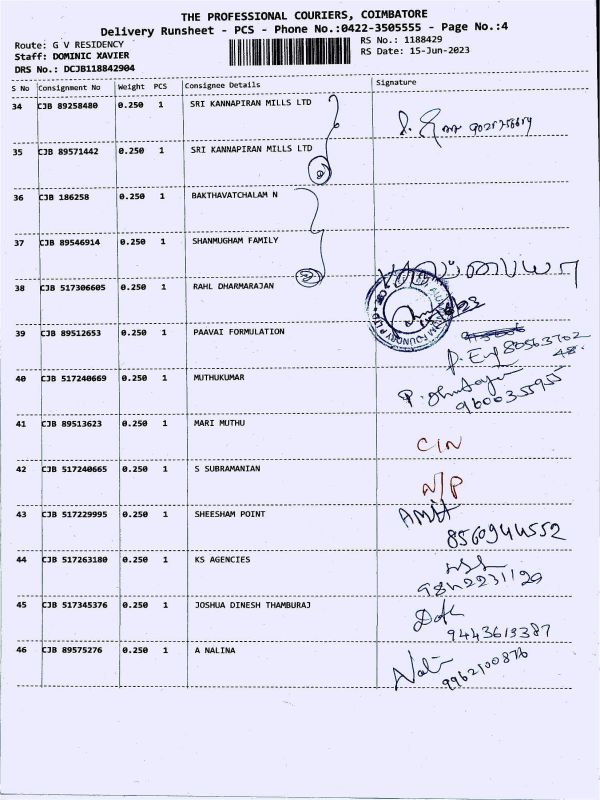 THE PROFESSIONAL COURIERS, COIMBATORE
Delivery Runsheet - PCS - Phone No.:0422-3505555 - Page No.:4
Route: G V RESIDENCY
RS No.: 1188429
Staff: DOMINIC XAVIER
RS Date: 15-Jun-2023
DRS No.: DCJB118842904
S No Consignment No Weight PCS Consignee Details Signature
34 CJB 89258480 0.250 1 SRI KANNAPIRAN MILLS LTD
35 CJB 89571442 0.250 1 SRI KANNAPIRAN MILLS LTD
36 CJB 186258 0.250 1 BAKTHAVATCHALAM N
37 CJB 89546914 0.250 1 SHANMUGHAM FAMILY
38 CJB 517306605 0.250 1 RAHL DHARMARAJAN
39 CJB 89512653 0.250 1 PAAVAI FORMULATION
40 CJB 517240669 0.250 1 MUTHUKUMAR
9600035595
41 CJB 89513623 0.250 1 MARI MUTHU
C/N
42 CJB 517240665 0.250 1 S SUBRAMANIAN
N/P
43 CJB 517229995 0.250 1 SHEESHAM POINT
AMIT
8560944552
44 CJB 517263180 0.250 1 KS AGENCIES
9842231120
45 CJB 517345376 0.250 1 JOSHUA DINESH THAMBURAJ
9443613387
46 CJB 89575276 0.250 1 A NALINA
9962100876